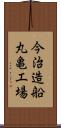 今治造船
丸亀工場